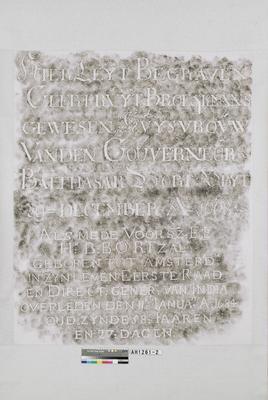 HIER LEYT BEGRAVEN
GEERTRUYT BROECKMANS
GEWESEN HUYSVROUW
VANDEN GOUVERNEUR
BALTHASAR BORT
DECEMBER A
ALS MEDE VOORSZ E E
HE B BORT ZAL
GEBOREN TOT AMSTERD
IN ZYN LEVEN EERSTE RAAD
EN DIRECT GENER VAN INDIA
OVERLEDEN DEN JANUA A
OUD ZYNDE JAAREN
EN 77 DAGEN
AH1261-2